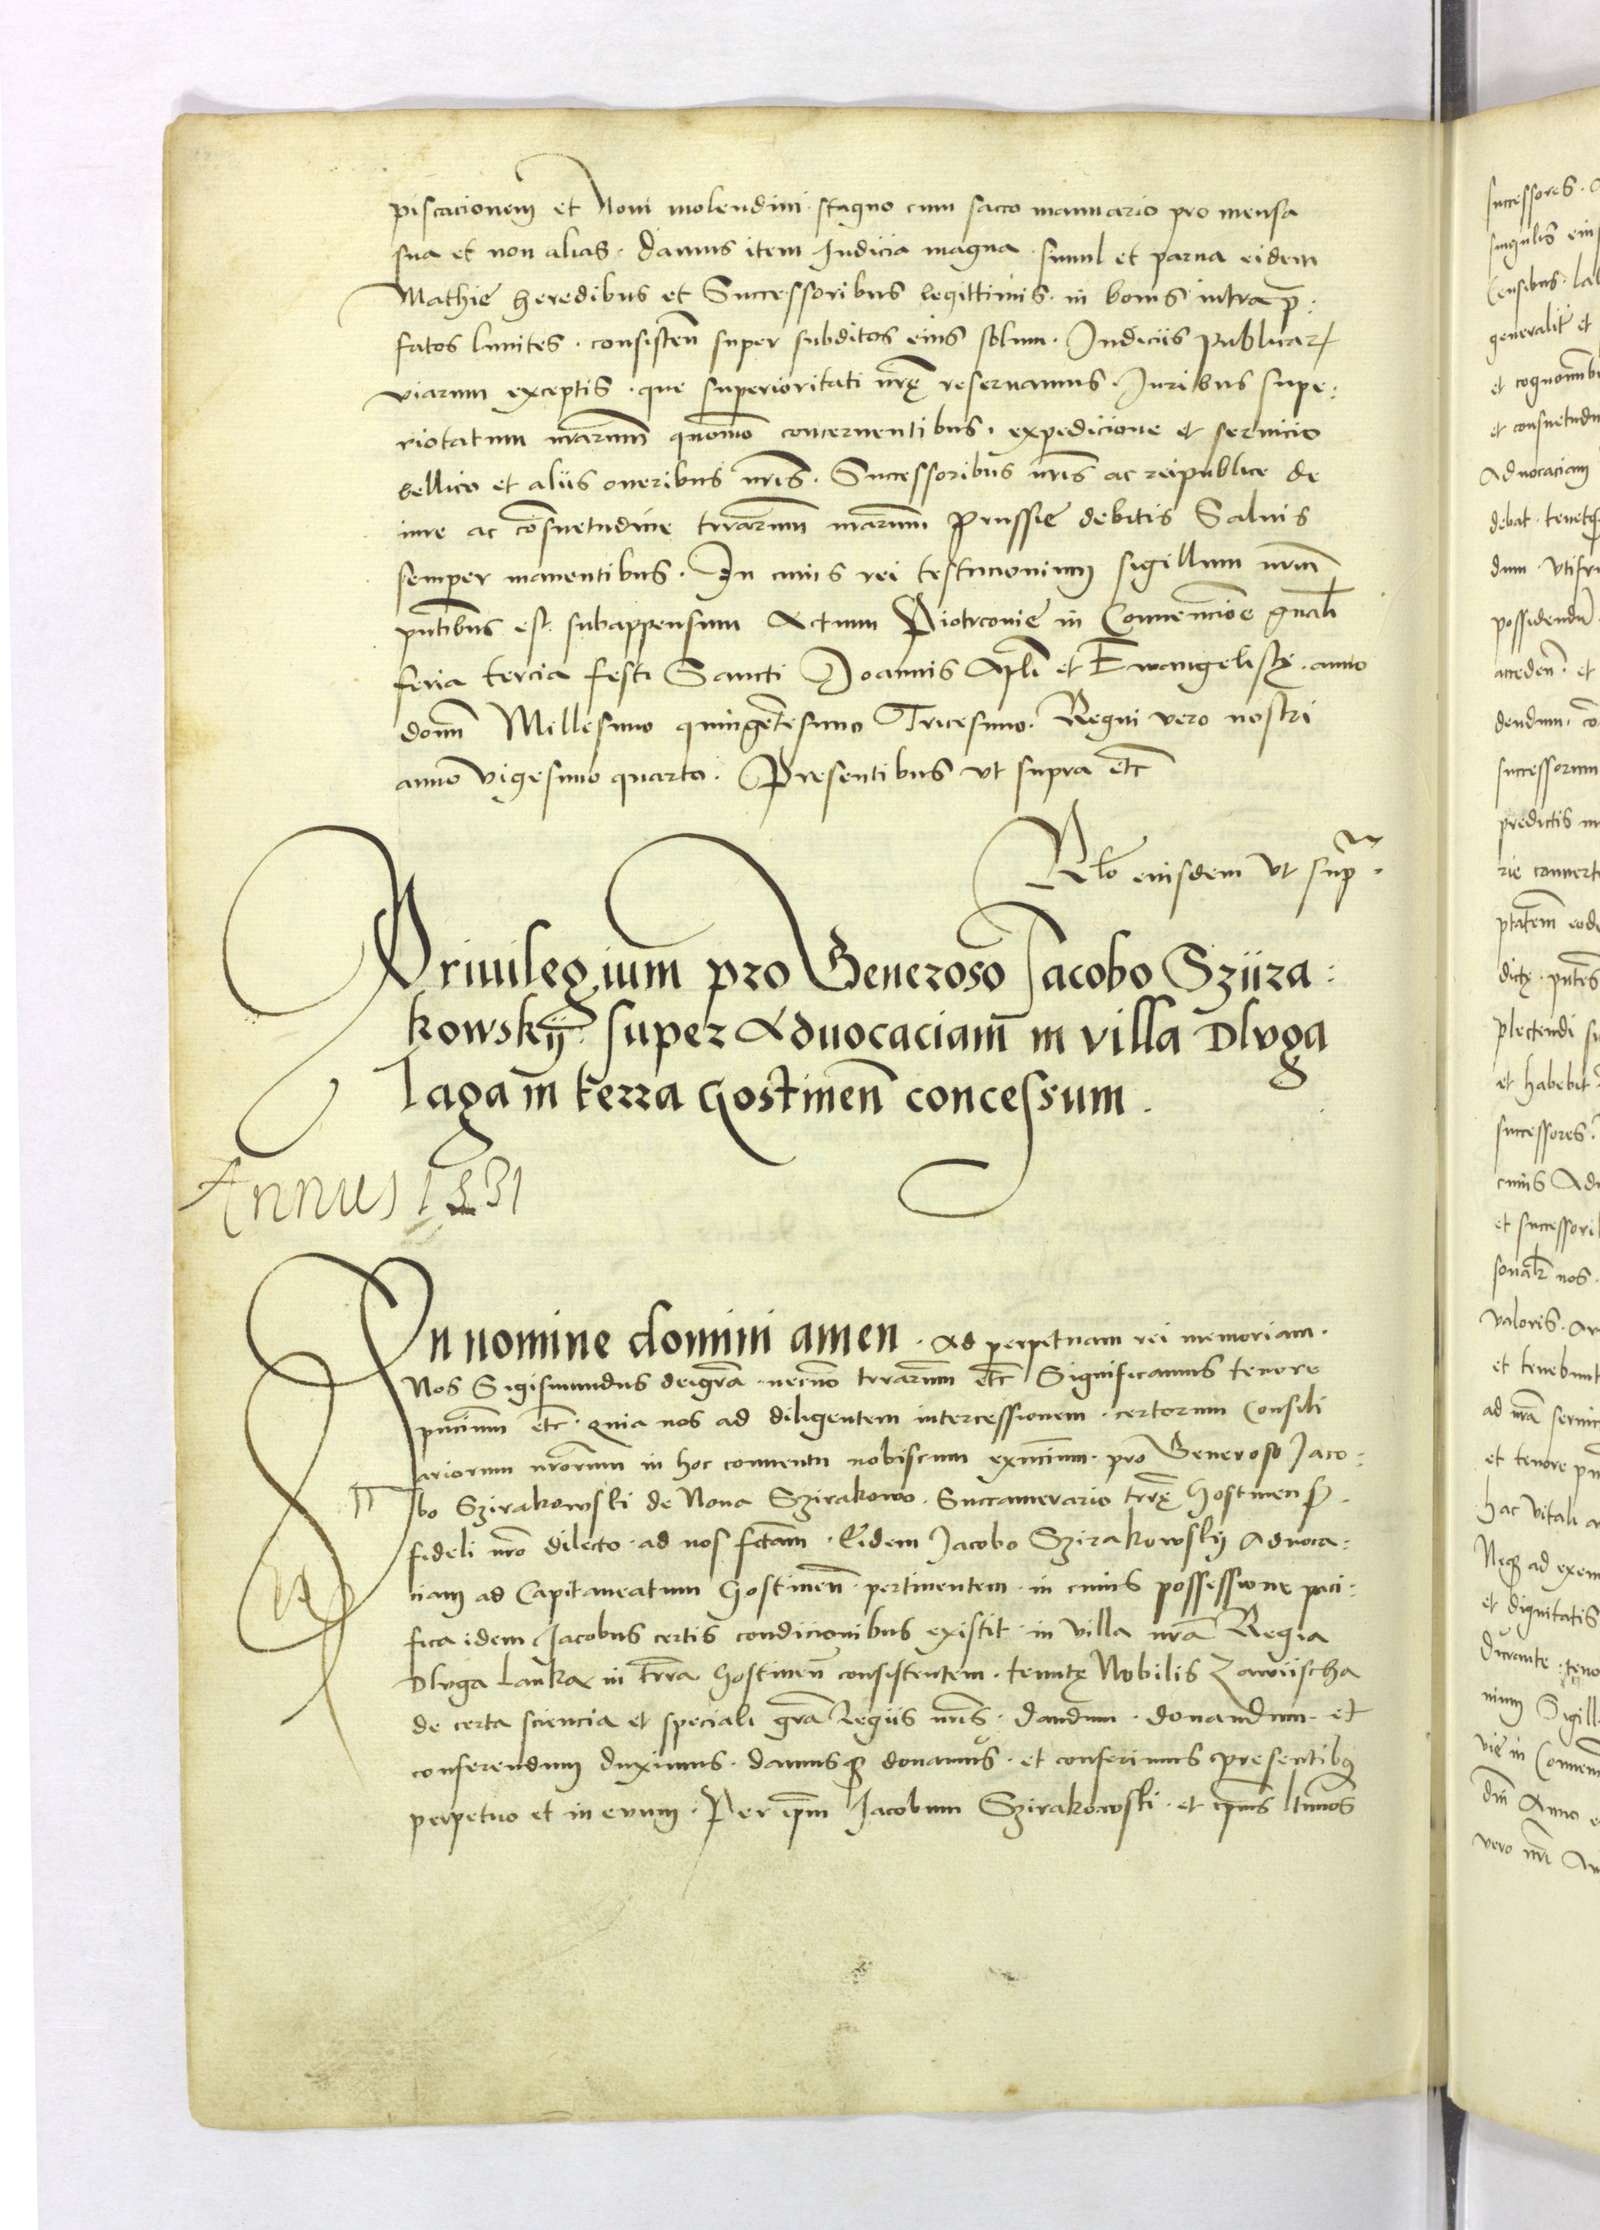 piscacionem et Noui molendini stagno cum sacco manuario pro mensa
sua et non alias. damus item Judicia magna simul et parua eidem
Mathie heredibus et Successoribus legittimis in bonis intra p̄:
fatos limites consisteñ super subditos eius solum. Judiciis publicar
viarum exceptis que superioritati nr̄ę reseruamus. Juribus supe:
riotatum nr̄arum quom̄o concernentibus, expedicione et seruicio
bellico et aliis oneribus nr̄is. Successoribus nr̄is ac reipublice de
iure ac con̄suetudine trr̄arum nr̄arum Prussie debitis Saluis
semper manentibus. In cuius rei testimonium sigillum nr̄um
pn̄tibus est subappensum Actum Piotrconie in Conuencione gn̄ali
feria tercia festi Sancti Joannis Apl̄i et Ewangelistę anno
domi Millesimo quingentesimo Tricesimo. Regni vero nostri
anno vigesimo quarto. Presentibus vt supra etc̄
Rl̄o eiusdem vt sup̄ra.
Priuilegium pro Generoso Jacobo Sziira:
kowskÿ super Aduocaciam in villa Dlvga
laga in terra Gostineñ concessum.
Annus 1531
In nomine domini amen. Ad perpetuam rei memoriam.
Nos Sigismundus deigr̄a necno trr̄arum etc̄ Significamus tenore
pn̄cium etc̄ quia nos ad diligentem intercessionem certorum Consili
ariorum nr̄orum in hoc conuentu nobiscum exn̄cium pro Generoso Jaco:
bo Szirakowski de Noua Szirakowo. Succamerario trr̄ę Gostinen̄
fideli nr̄o dilecto ad nos fctam. Eidem Jacobo Szirakowskÿ Aduoca:
ciam ad Capitaneatum Gostineñ pertinentem in cuius possessione paci:
fica idem Jacobus certis condicionibus existit in villa nr̄a Regia
Dlvga Lanka in trr̄a Gostineñ consistentem. tenutę Nobilis Zawiischa
de certa sciencia et speciali gr̄a Regiis nr̄is dandum donandum et
conferendum duximus. damusq donamus et conferimus presentibus
perpetuo et in euum. Per ip̄m Jacobum Szirakowski et ip̄ius ltimos